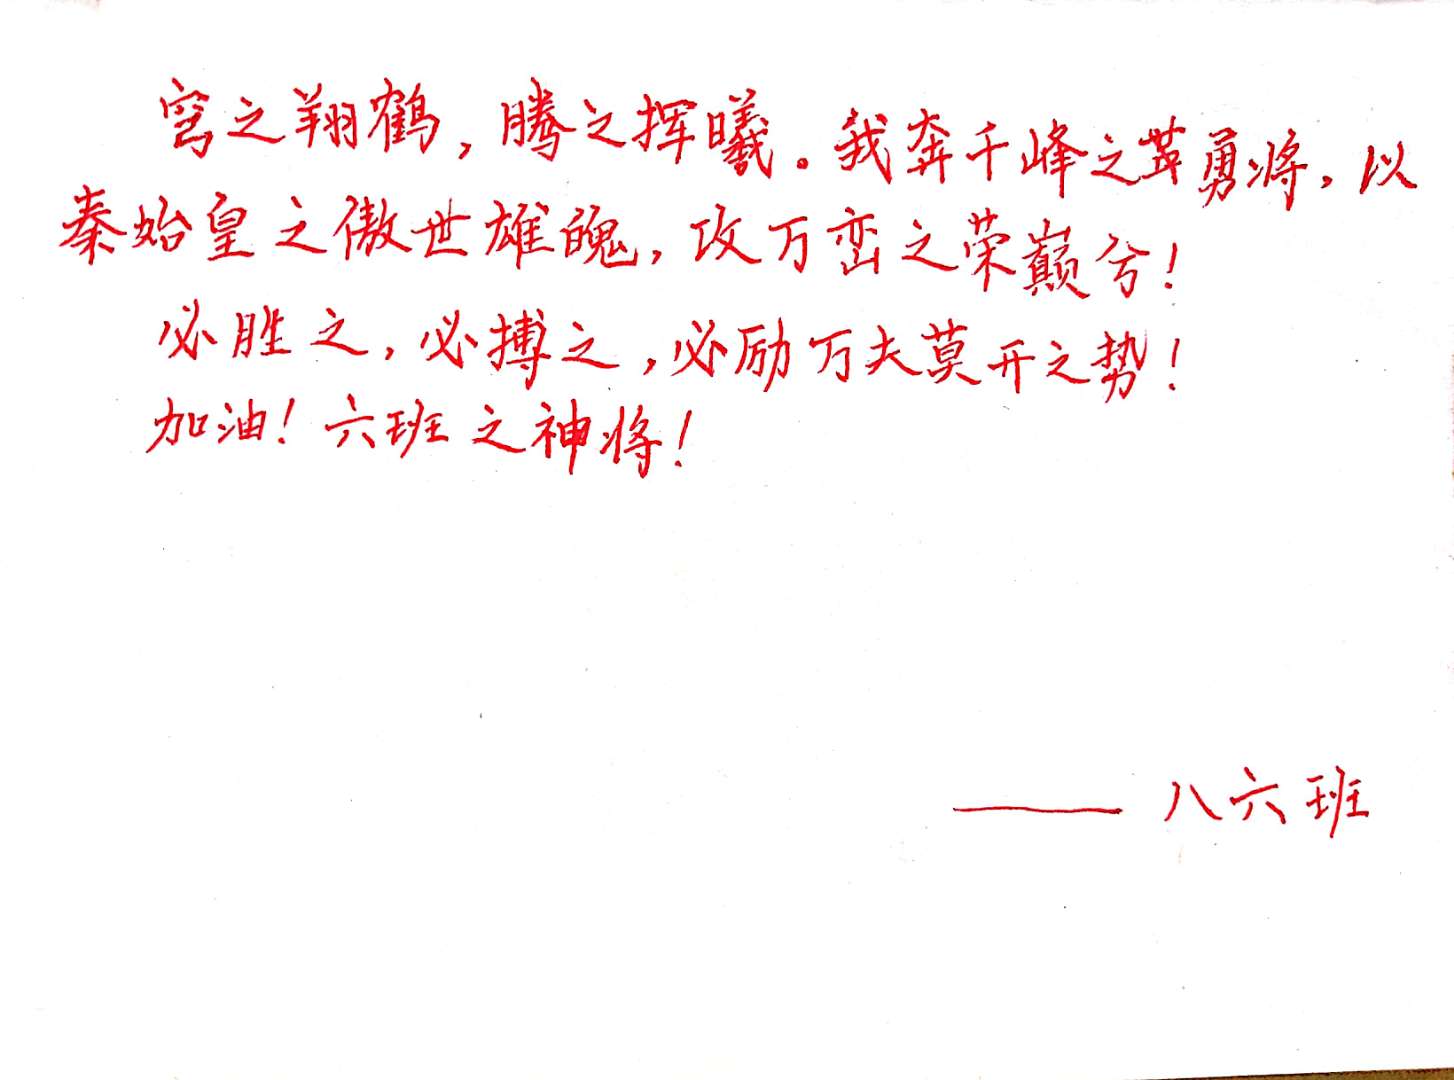 穹之翔鹤，腾之挥曦。我奔千峰之勇将，以
秦始皇之傲世雄魄，攻万峦之荣巅兮！
必胜之，必搏之，必励万夫莫开之势！
加油！六班之神将！
——八六班